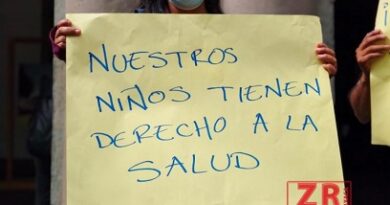 NUESTROS
NIÑOS TIENEN
DERECHO A LA
SALUD
ZR